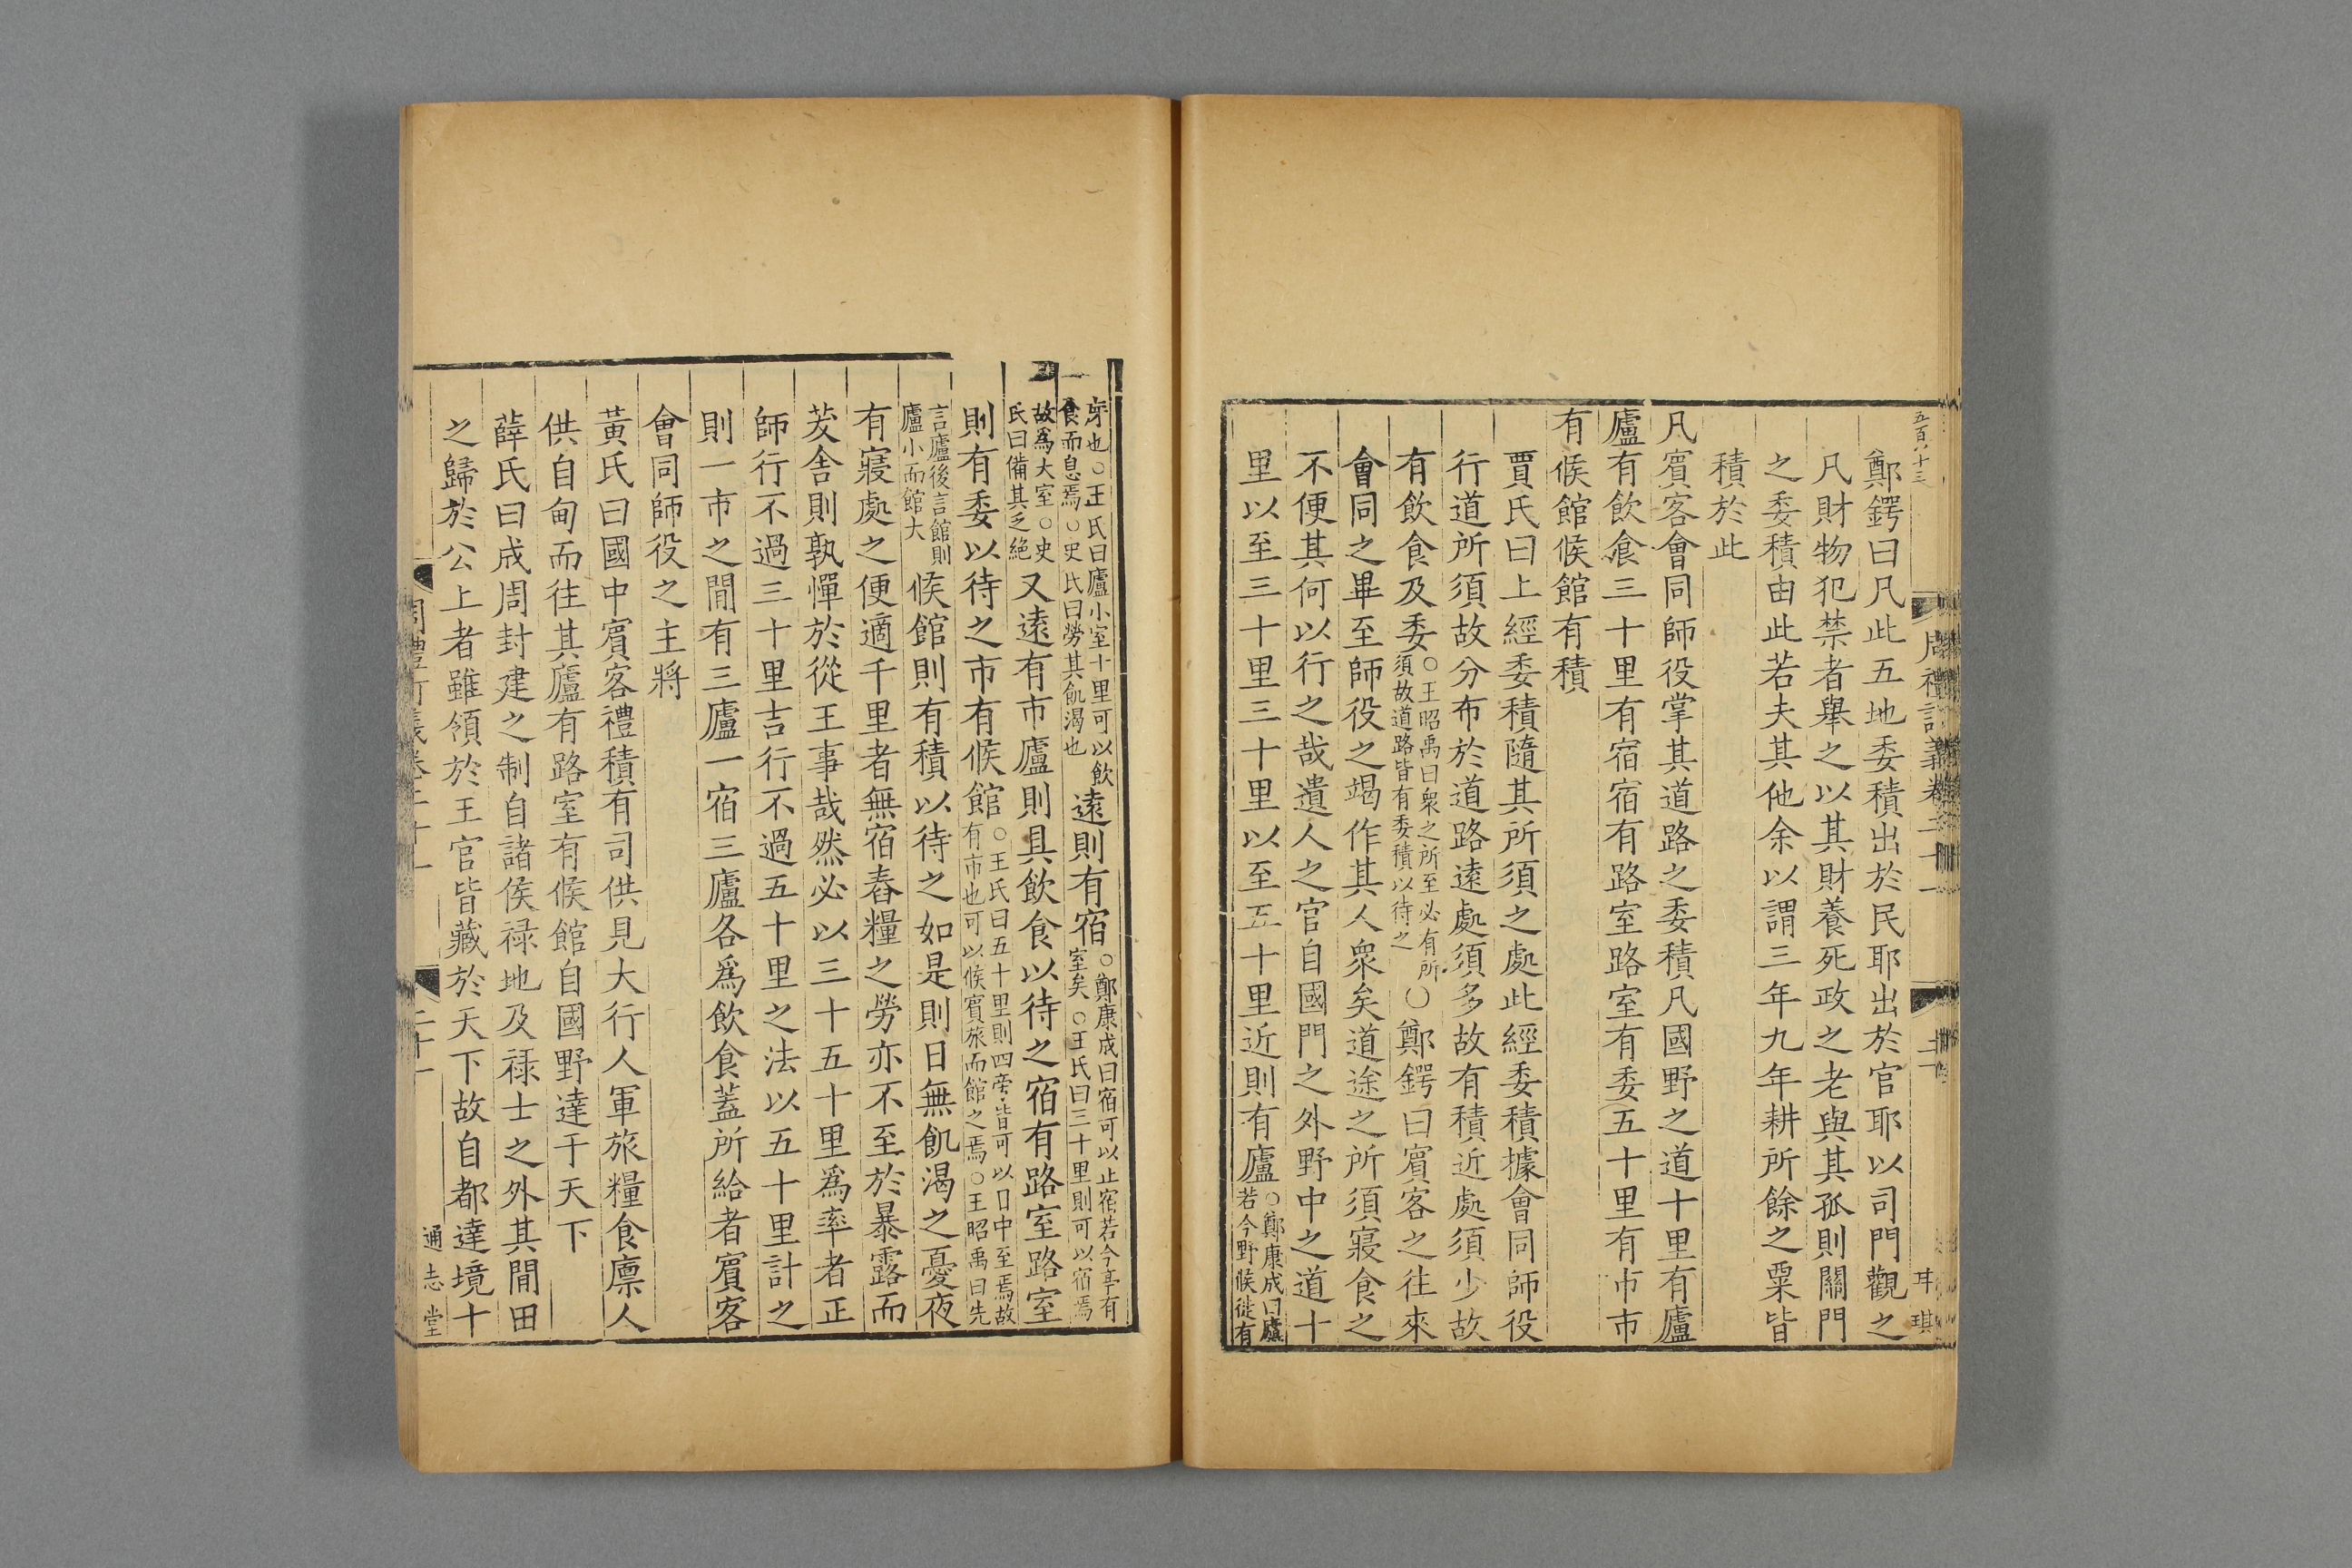 五百八十三
鄭鍔曰凡此五地委積出於民耶出於官耶以司門觀之
凡財物犯禁者舉之以其財養死政之老與其孤則關門
之委積由此若夫其他余以謂三年九年耕所餘之粟皆
積於此
凡賓客會同師役掌其道路之委積凡國野之道十里有廬
廬有飲食三十里有宿宿有路室路室有委五十里有市市
有候館候館有積
賈氏曰上經委積隨其所須之處此經委積據會同師役
行道所須故分布於道路遠處須多故有積近處須少故
有飲食及委○王昭禹曰衆之所至必有所
須故道路皆有委積以待之○鄭鍔曰賓客之往來
會同之畢至師役之竭作其人衆矣道途之所須寢食之
不便其何以行之哉遺人之官自國門之外野中之道十
里以至三十里三十里以至五十里近則有廬○鄭康成曰廬
若今野候徙有
庌也○王氏曰廬小室十里可以飲
食而息焉○史氏曰勞其飢渴也遠則有宿○鄭康成曰宿可以止宿若今亭有
室矣○王氏曰三十里則可以宿焉
故爲大室○史
氏曰備其乏絶又遠有市廬則具飲食以待之宿有路室路室
則有委以待之市有候館○王氏曰五十里則四旁皆可以日中至焉故
有市也可以候賓旅而館之焉○王昭禹曰先
言廬後言館則
廬小而館大候館則有積以待之如是則日無飢渴之憂夜
有寢處之便適千里者無宿舂糧之勞亦不至於暴露而
茇舍則孰憚於從王事哉然必以三十五十里爲率者正
師行不過三十里吉行不過五十里之法以五十里計之
則一市之間有三廬一宿三廬各爲飲食蓋所給者賓客
會同師役之主將
黃氏曰國中賓客禮積有司供見大行人軍旅糧食廩人
供自甸而往其廬有路室有候館自國野達于天下
薛氏曰成周封建之制自諸侯祿地及祿士之外其間田
之歸於公上者雖領於王官皆藏於天下故自都達境十
通志堂